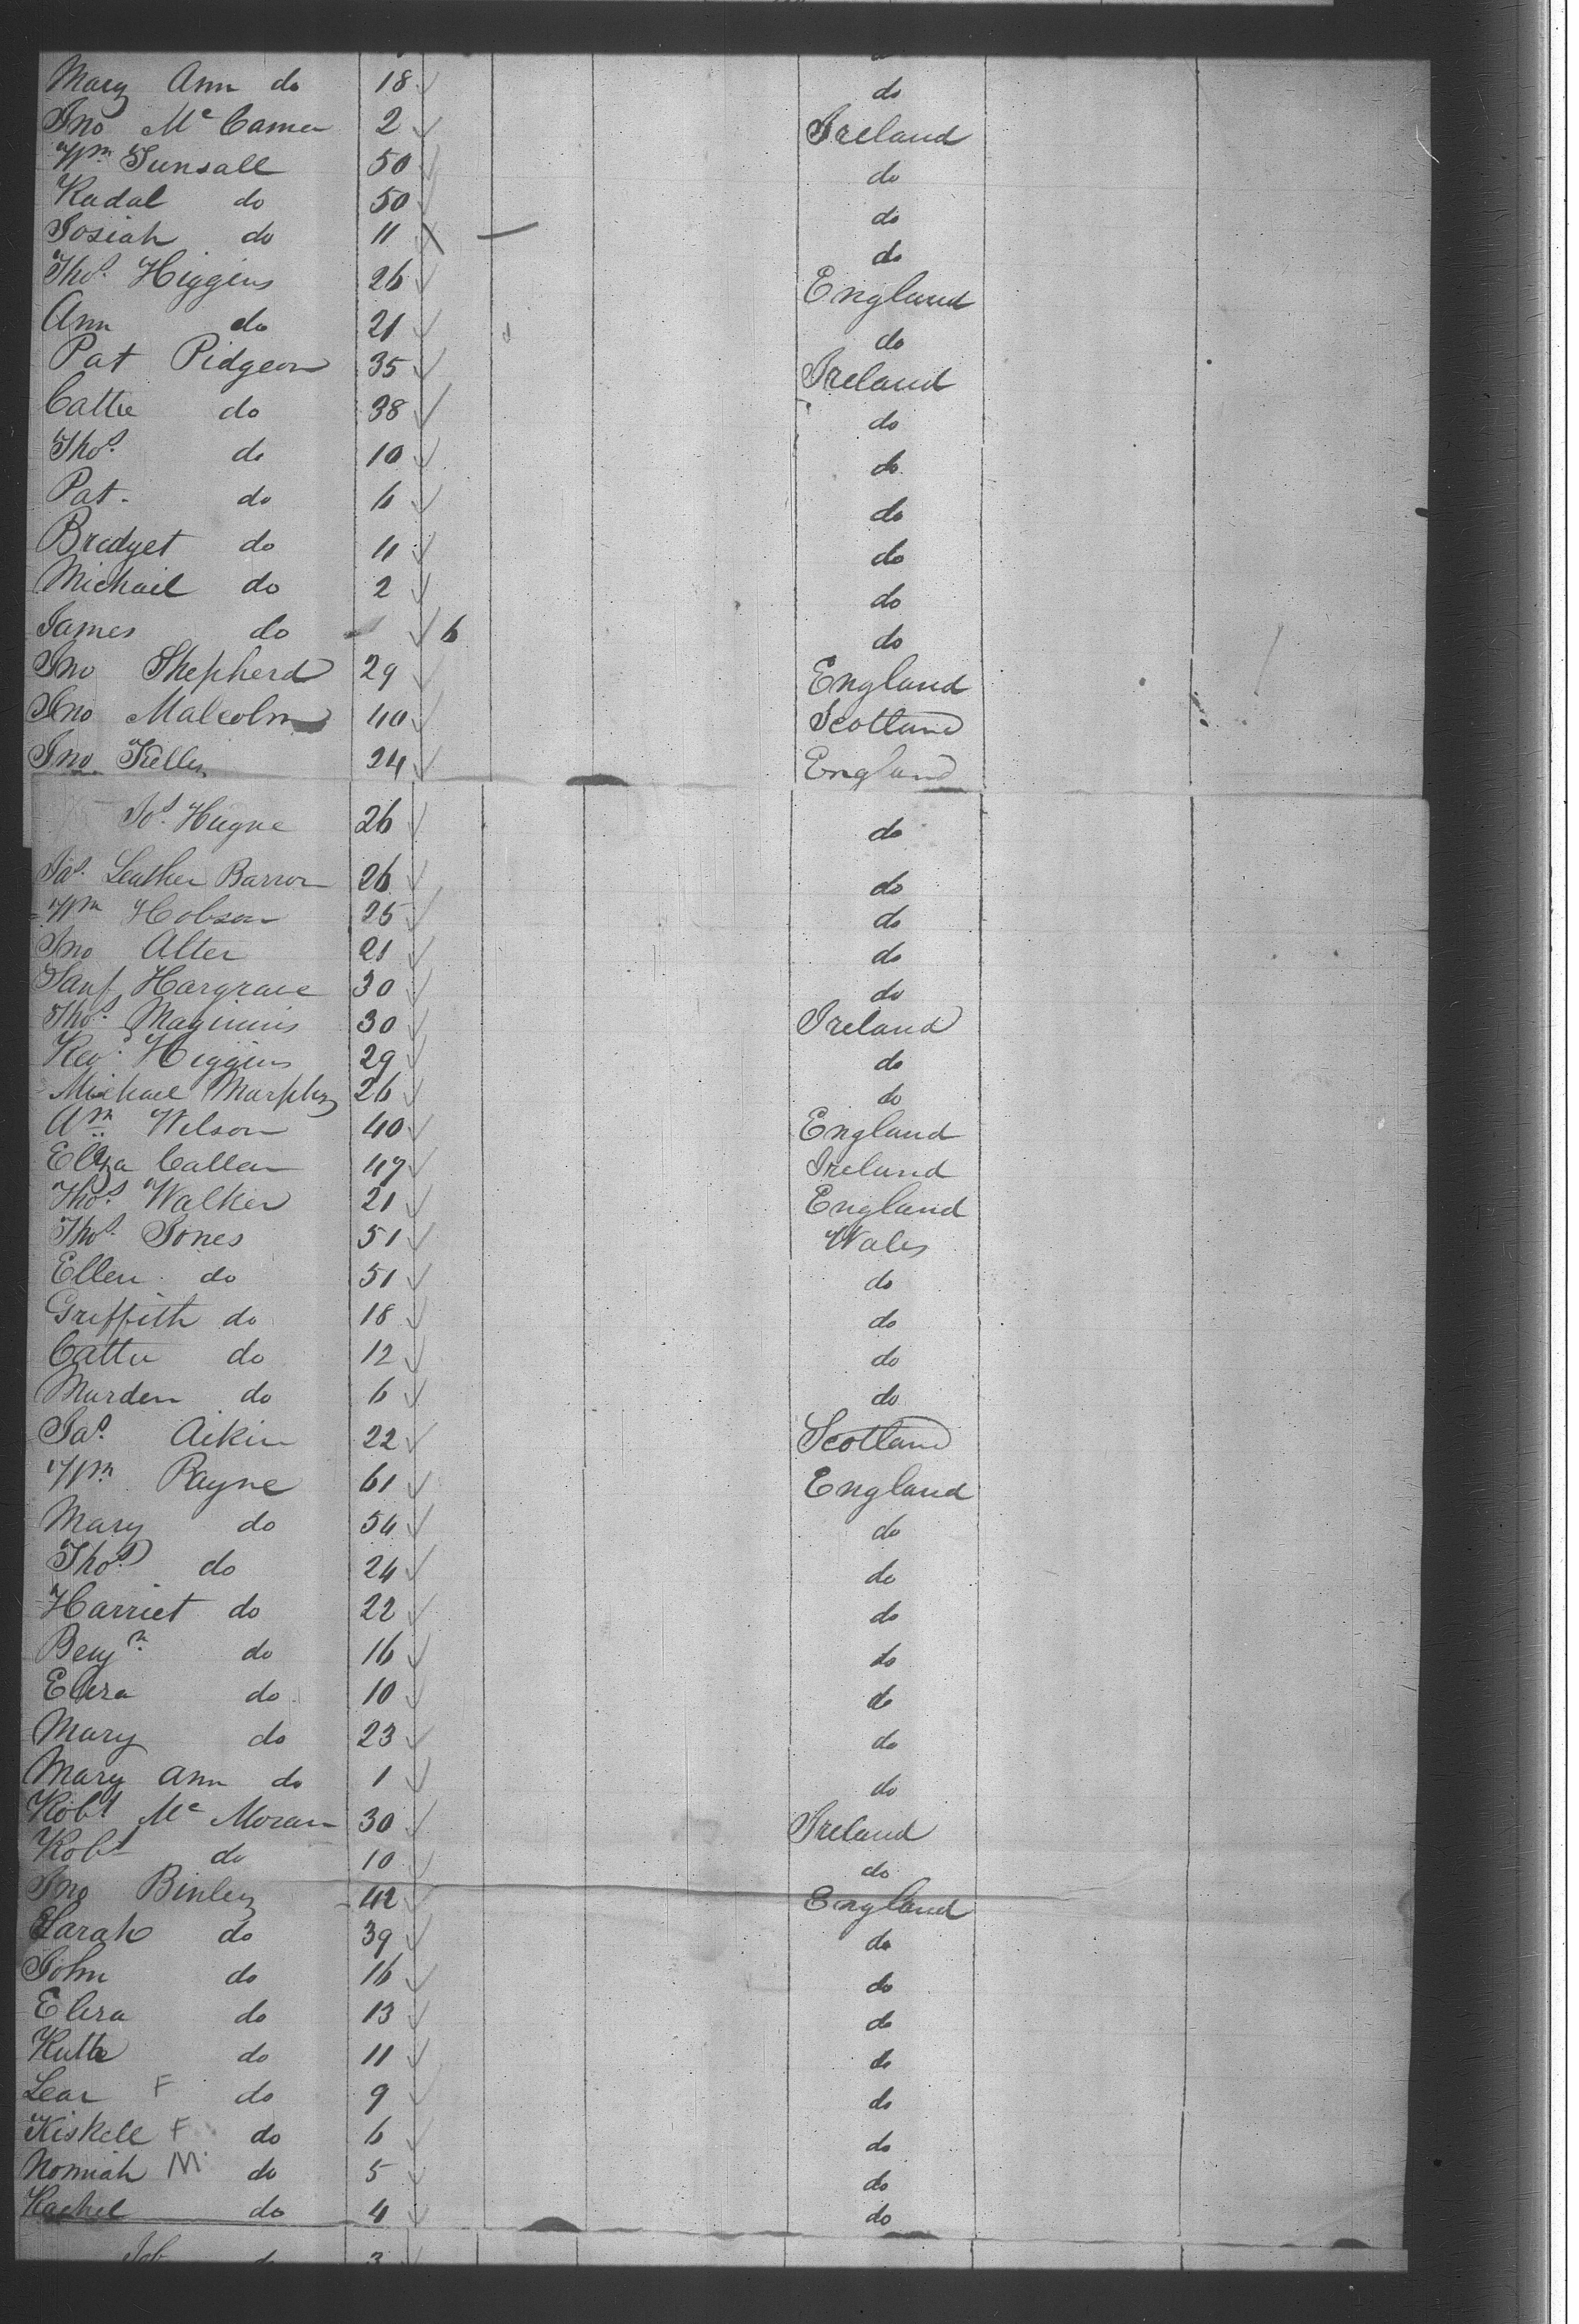 Mary Ann do 18 do
Jno Mc Camen 2 Ireland
Wm Sunsall 50 do
Kadal do 50 do
Josiah do 11 do
Thos. Higgins 26 England
Ann do 21 do
Pat Pidgeon 35 Ireland
Cattie do 38 do
Thos. do 10 do
Pat. do 6 do
Bredget do 11 do
Michail do 2 do
James do 6 do
Jno Shepherd 29 England
Jno Malcolm 40 Scotland
Jno Keller 24 England
Jos. Hugne 26 do
Jas. Leather Barron 26 do
Wm Hobson 25 do
Jno Alter 21 do
Hargrave 30 do
Thos. Maginnis 30 Ireland
Higgins 29 do
Michael Murphy 26 do
Wilson 40 England
Eliza Callan 47 Ireland
Thos. Walker 21 England
Thos. Jones 51 Wales
Ellen do 51 do
Griffith do 18 do
Cattie do 12 do
Murden do 6 do
Jas. Aikin 22 Scotland
Wm Rayne 61 England
Mary do 54 do
Thos. do 24 do
Harriet do 22 do
Benjn. do 16 do
Eliza do 10 do
Mary do 23 do
Mary Ann do 1 do
Robt Mc Moran 30 Ireland
Robt do 10 do
Jno Binley 42 England
Sarah do 39 do
John do 16 do
Eliza do 13 do
Ruth do 11 do
Lear F do 9 do
Kiskell F do 6 do
Nomiah M do 5 do
Rachel do 4 do
Job do 3